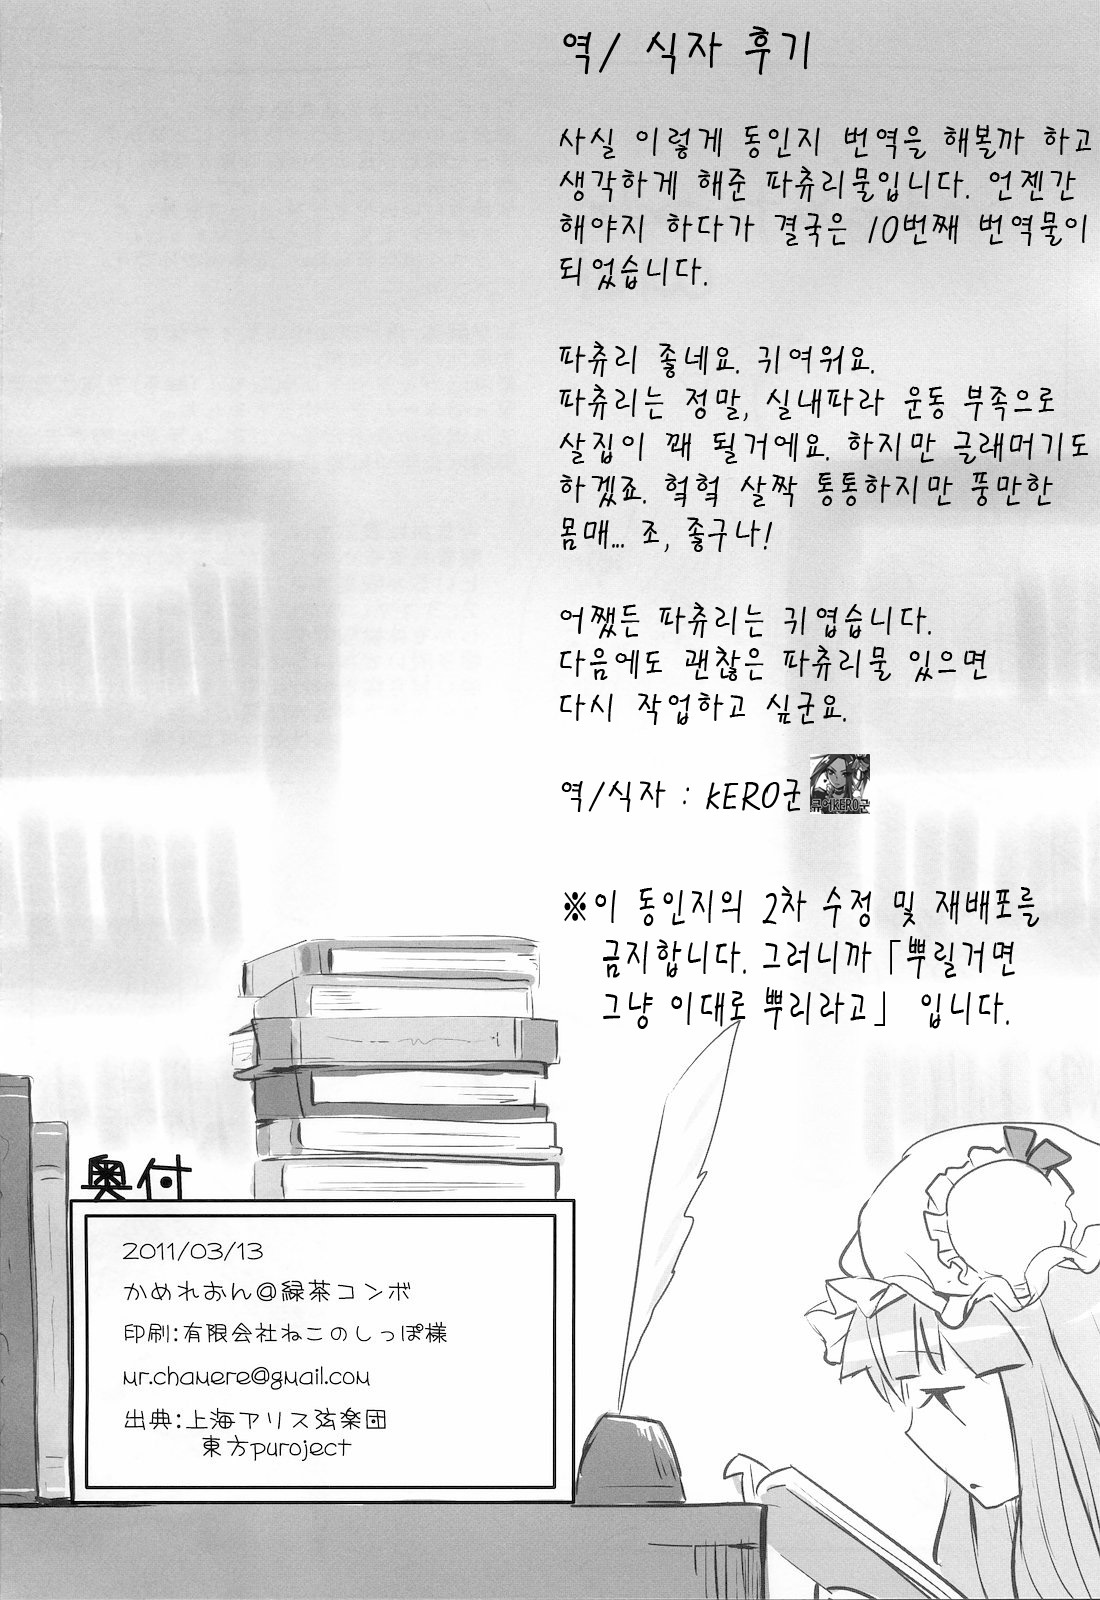 역/ 식자 후기
사실 이렇게 동인지 번역을 해볼까 하고
생각하게 해준 파츄리물입니다. 언젠간
해야지 하다가 결국은 10번째 번역물이
되었습니다.
파츄리 좋네요. 귀여워요.
파츄리는 정말, 실내파라 운동 부족으로
살집이 꽤 될거에요. 하지만 글래머기도
하겠죠. 헠헠 살짝 통통하지만 풍만한
몸매... 조, 좋구나!
어쨌든 파츄리는 귀엽습니다.
다음에도 괜찮은 파츄리물 있으면
다시 작업하고 싶군요.
역/식자 : KERO군
큐어KERO군
※이 동인지의 2차 수정 및 재배포를
금지합니다. 그러니까 「뿌릴거면
그냥 이대로 뿌리라고」 입니다.
奥付
2011/03/13
かめれおん@緑茶コンボ
印刷:有限会社ねこのしっぽ様
mr.chamere@gmail.com
出典:上海アリス弦楽団
東方puroject